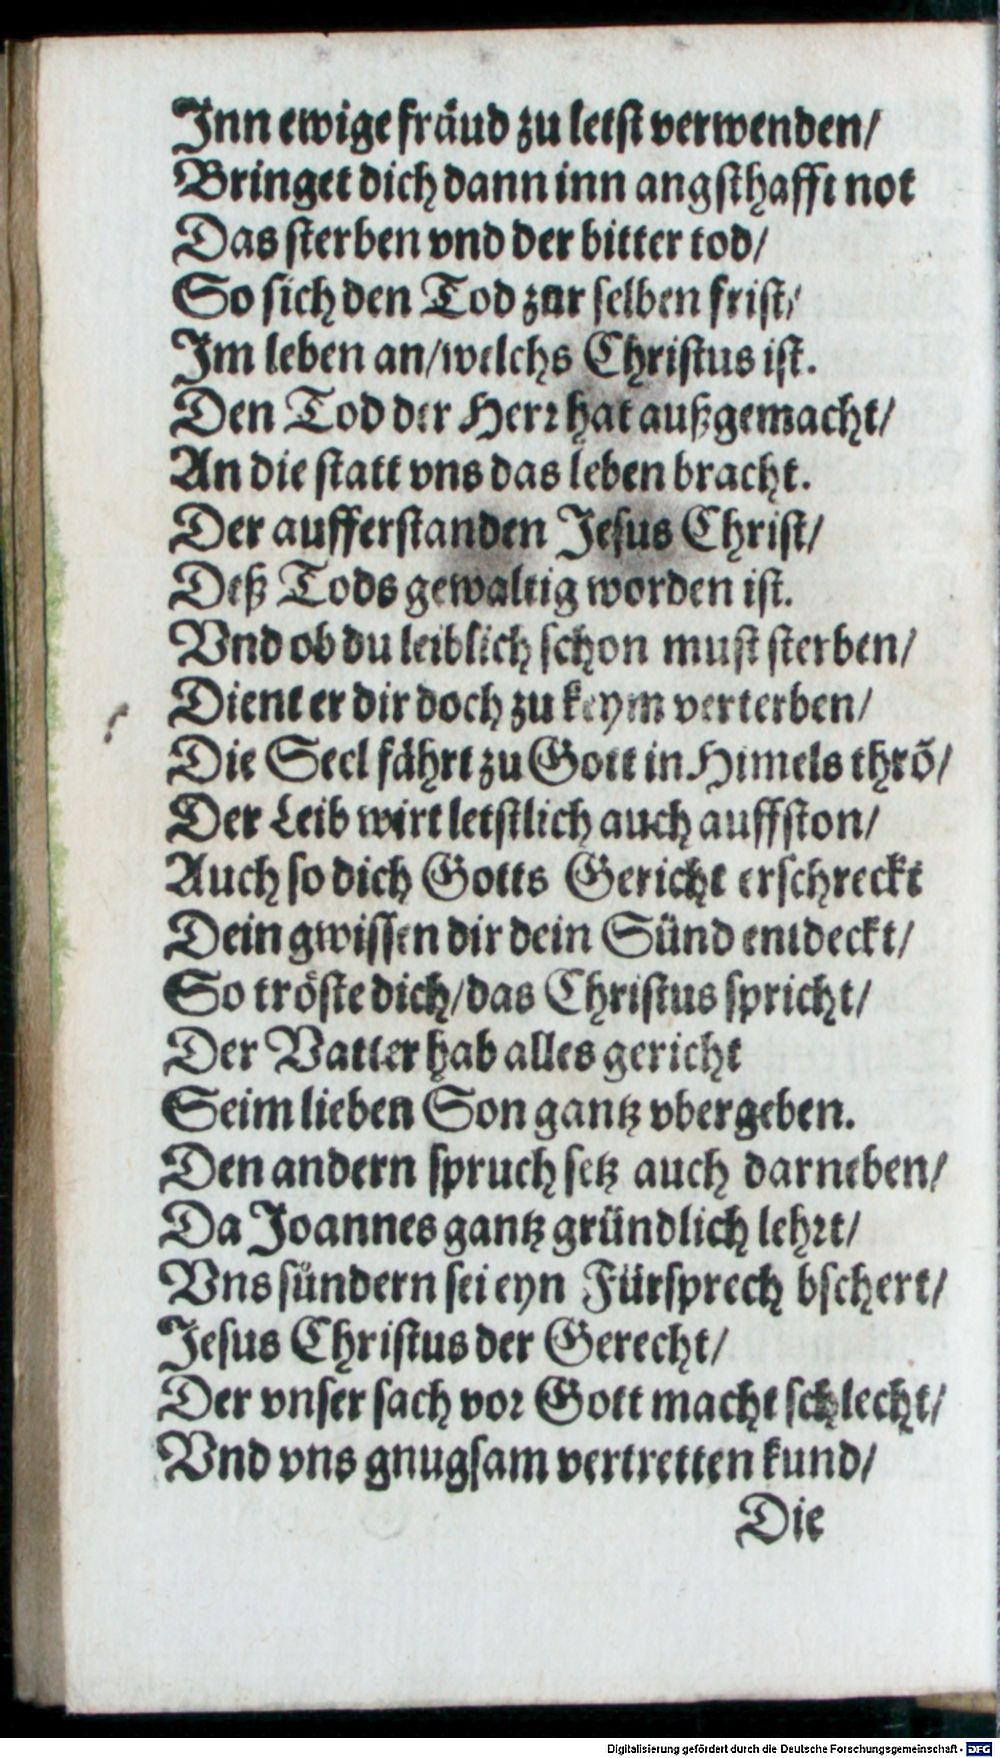 Jnn ewige fräud zu letſt verwenden/
Bringet dich dann inn angſthafft not
Das ſterben vnd der bitter tod/
So ſich den Tod zur ſelben friſt/
Jm leben an/welchs Chriſtus iſt.
Den Tod der Herr hat außgemacht/
An die ſtatt vns das leben bracht.
Der aufferſtanden Jeſus Chriſt/
Deß Tods gewaltig worden iſt.
Vnd ob du leiblich ſchon muſt ſterben/
Dient er dir doch zu keym verterben/
Die Seel fährt zu Gott in Himels thrõ/
Der Leib wirt letſtlich auch auffſton/
Auch ſo dich Gotts Gericht erſchreckt
Dein gwiſſen dir dein Sünd entdeckt/
So tröſte dich/das Chriſtus ſpricht/
Der Vatter hab alles gericht
Seim lieben Son gantz vbergeben.
Den andern ſpruch ſetz auch darneben/
Da Joannes gantz gründlich lehrt/
Vns ſündern ſei eyn Fürſprech bſchert/
Jeſus Chriſtus der Gerecht/
Der vnſer ſach vor Gott macht ſchlecht/
Vnd vns gnugſam vertretten kund/
Die
Digitalisierung gefördert durch die Deutsche Forschungsgemeinschaft - DFG